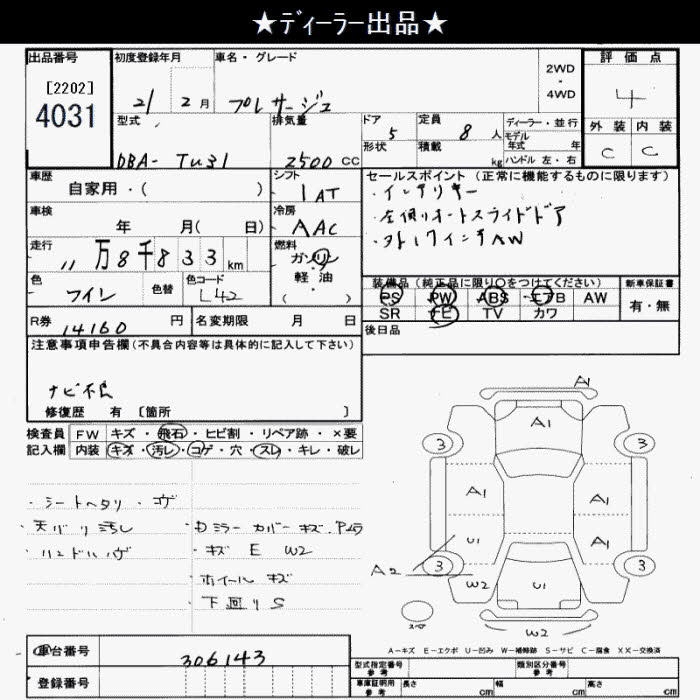 ★ディーラー出品★
出品番号
[2202]
4031
初度登録年月
21 2月
車名・グレード
プレサージュ
2WD
・
4WD
評価点
4
外装 内装
C C
型式
DBA- TU31
排気量
2500 CC
ドア 5
形状
定員 8 人
積載 kg
ディーラー・並行
モデル
年式 年
ハンドル 左・右
車歴
自家用・( )
シフト
IAT
セールスポイント (正常に機能するものに限ります)
・インテリキー
・左側オートスライドドア
・外17インチAW
車検
年 月( 日)
冷房
AAC
走行
11万8千833 km
燃料
ガソリン
・
軽油
( )
色
ワイン
色替
色コード
L42
装備品 (純正品に限り○をつけてください)
新車保証書
PS PW ABS エアB AW
SR FE TV カワ
有・無
R券 14160 円
名変期限 月 日
後日品
注意事項申告欄(不具合内容等は具体的に記入して下さい)
ナビ不良
修復歴 有 〔箇所 〕
検査員 FW キズ・飛石・ヒビ割・リペア跡・×要
記入欄 内装 キズ・汚レ・コゲ・穴・スレ・キレ・破レ
・シートヘタリ・コゲ
・天バリ汚し
・ハンドルハゲ
・Dミラーカバーキズ
・キズ E W2
・ホイールキズ
・下廻りS
A1
A1
3 3
A1 A1
U1 A1
A2
3 3
W2 U1
スペア
W2
A-キズ E-エクボ U-凹み W-補修跡 S-サビ C-腐食 XX-交換済
車台番号 306143
登録番号
型式指定番号
参考
類別区分番号
参考
車庫証明用
参考
長さ cm 幅 cm 高さ cm